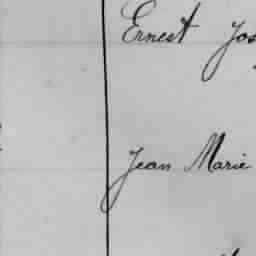 Ernest Jos
Jean Marie